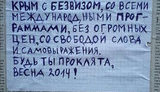 КРЫМ С БЕЗВИЗОМ, СО ВСЕМИ
МЕЖДУНАРОДНЫМИ ПРОГ-
РАММАМИ, БЕЗ ОГРОМНЫХ
ЦЕН, СО СВОБОДОЙ СЛОВА
И САМОВЫРАЖЕНИЯ.
БУДЬ ТЫ ПРОКЛЯТА,
ВЕСНА 2014!